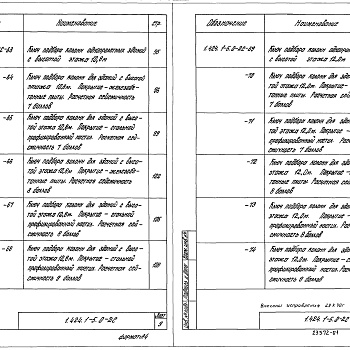 Наименование
стр.
02-63
Ключ подбора колонн одноэтажных зданий
с высотой этажа 10,8м
95
-64
Ключ подбора колонн для зданий с высотой
этажа 10,8м. Покрытие – железобе-
тонные плиты. Расчетная сейсмичность
7 баллов
96
-65
Ключ подбора колонн для зданий с высо-
той этажа 10,8м. Покрытие – стальной
профилированный настил. Расчетная сей-
смичность 7 баллов
99
-66
Ключ подбора колонн для зданий с высо-
той этажа 10,8м. Покрытие – железобе-
тонные плиты. Расчетная сейсмичность
8 баллов
102
-67
Ключ подбора колонн для зданий с высо-
той этажа 10,8м. Покрытие – стальной
профилированный настил. Расчетная сей-
смичность 8 баллов
-68
Ключ подбора колонн для зданий с высо-
той этажа 10,8м. Покрытие – стальной
профилированный настил. Расчетная сей-
смичность 9 баллов
1.424.1-5.0-02
Лист
9
формат А4
Обозначение
Наименование
1.424.1-5.0-02-69
Ключ подбора колонн
с высотой этажа 12,0м
-70
Ключ подбора колонн для здан
этажа 12,0м. Покрытие
тонные плиты. Расчетная
7 баллов
-71
Ключ подбора колонн для здан
этажа 12,0м. Покрытие
профилированный настил. Расч
смичность 7 баллов
-72
Ключ подбора колонн для здан
этажа 12,0м. Покрытие
тонные плиты. Расчетная сей
8 баллов
-73
Ключ подбора колонн для здан
той этажа 12,0м. Покрытие
профилированный настил. Рас
смичность 8 баллов
-74
Ключ подбора колонн для здан
той этажа 12,0м. Покрытие
профилированный настил.
смичность 9 баллов
Внесены исправления
1.424.1-5.0-02
23572-01